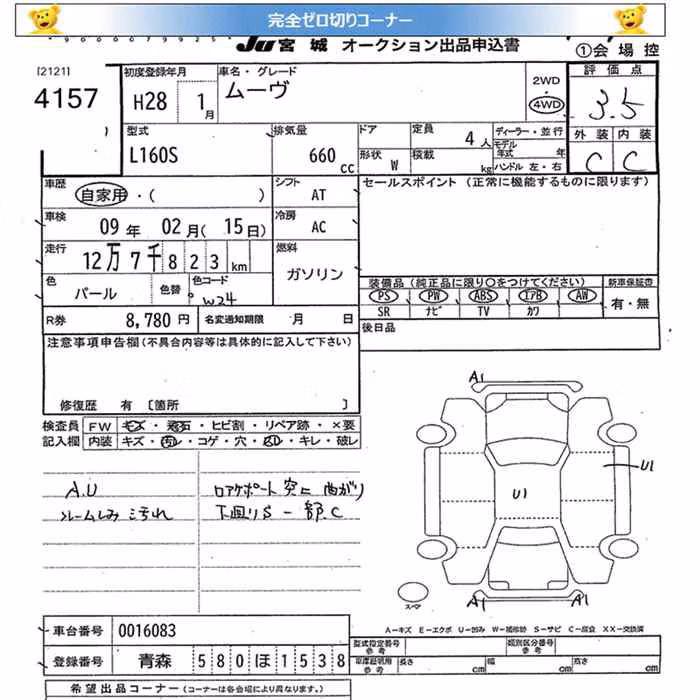 完全ゼロ切りコーナー
JU 宮城 オークション出品申込書
①会場控
[2121]
4157
初度登録年月
H28 1月
車名・グレード
ムーヴ
2WD
・
4WD
評価点
3.5
型式
L160S
排気量
660 cc
ドア
定員
4人
ディーラー・並行
モデル年式 年
ハンドル 左・右
形状
W
積載
kg
外装 内装
C C
車歴
自家用・( )
シフト
AT
セールスポイント (正常に機能するものに限ります)
車検
09年 02月(15日)
冷房
AC
走行
12万7千823km
燃料
ガソリン
色
パール
色替
色コード
W24
装備品(純正品に限り○をつけてください)
新車保証書
PS PW ABS エアB AW
有・無
SR ナビ TV カワ
R券 8,780円
名変通知期限 月 日
後日品
注意事項申告欄(不具合内容等は具体的に記入して下さい)
修復歴 有 [箇所 ]
検査員記入欄
FW キズ・飛石・ヒビ割・リペア跡・×要
内装 キズ・汚れ・コゲ・穴・スレ・キレ・破レ
A.U
ルームしみ 汚れ
ロアサポート 突上 曲がり
下廻りS 一部C
A1
U1
U1
A1
A1
スペア
A-キズ E-エクボ U-凹み W-補修跡 S-サビ C-腐食 XX-交換済
車台番号 0016083
登録番号 青森 580ほ1538
型式指定番号 参考
類別区分番号 参考
車庫証明用 参考
長さ cm
幅 cm
高さ cm
希望出品コーナー (コーナーは各会場により異なります。)